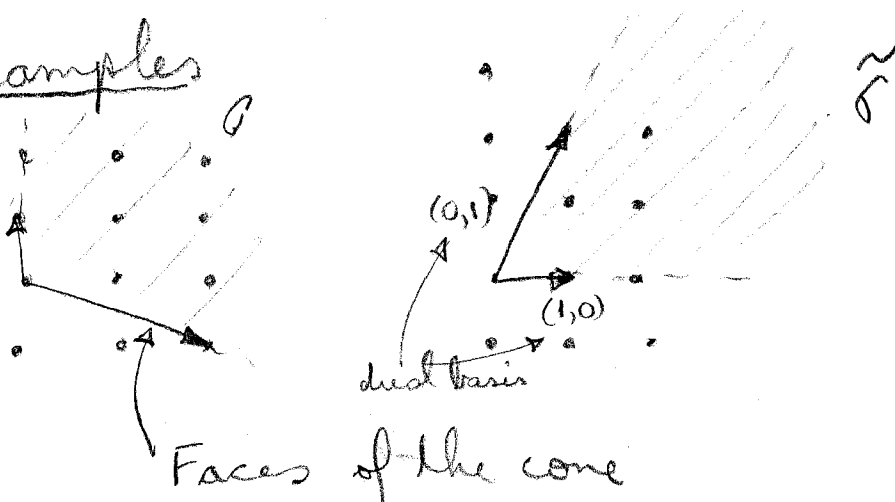 amples
σ
σ̃
(0,1)
(1,0)
dual basis
Faces of the cone